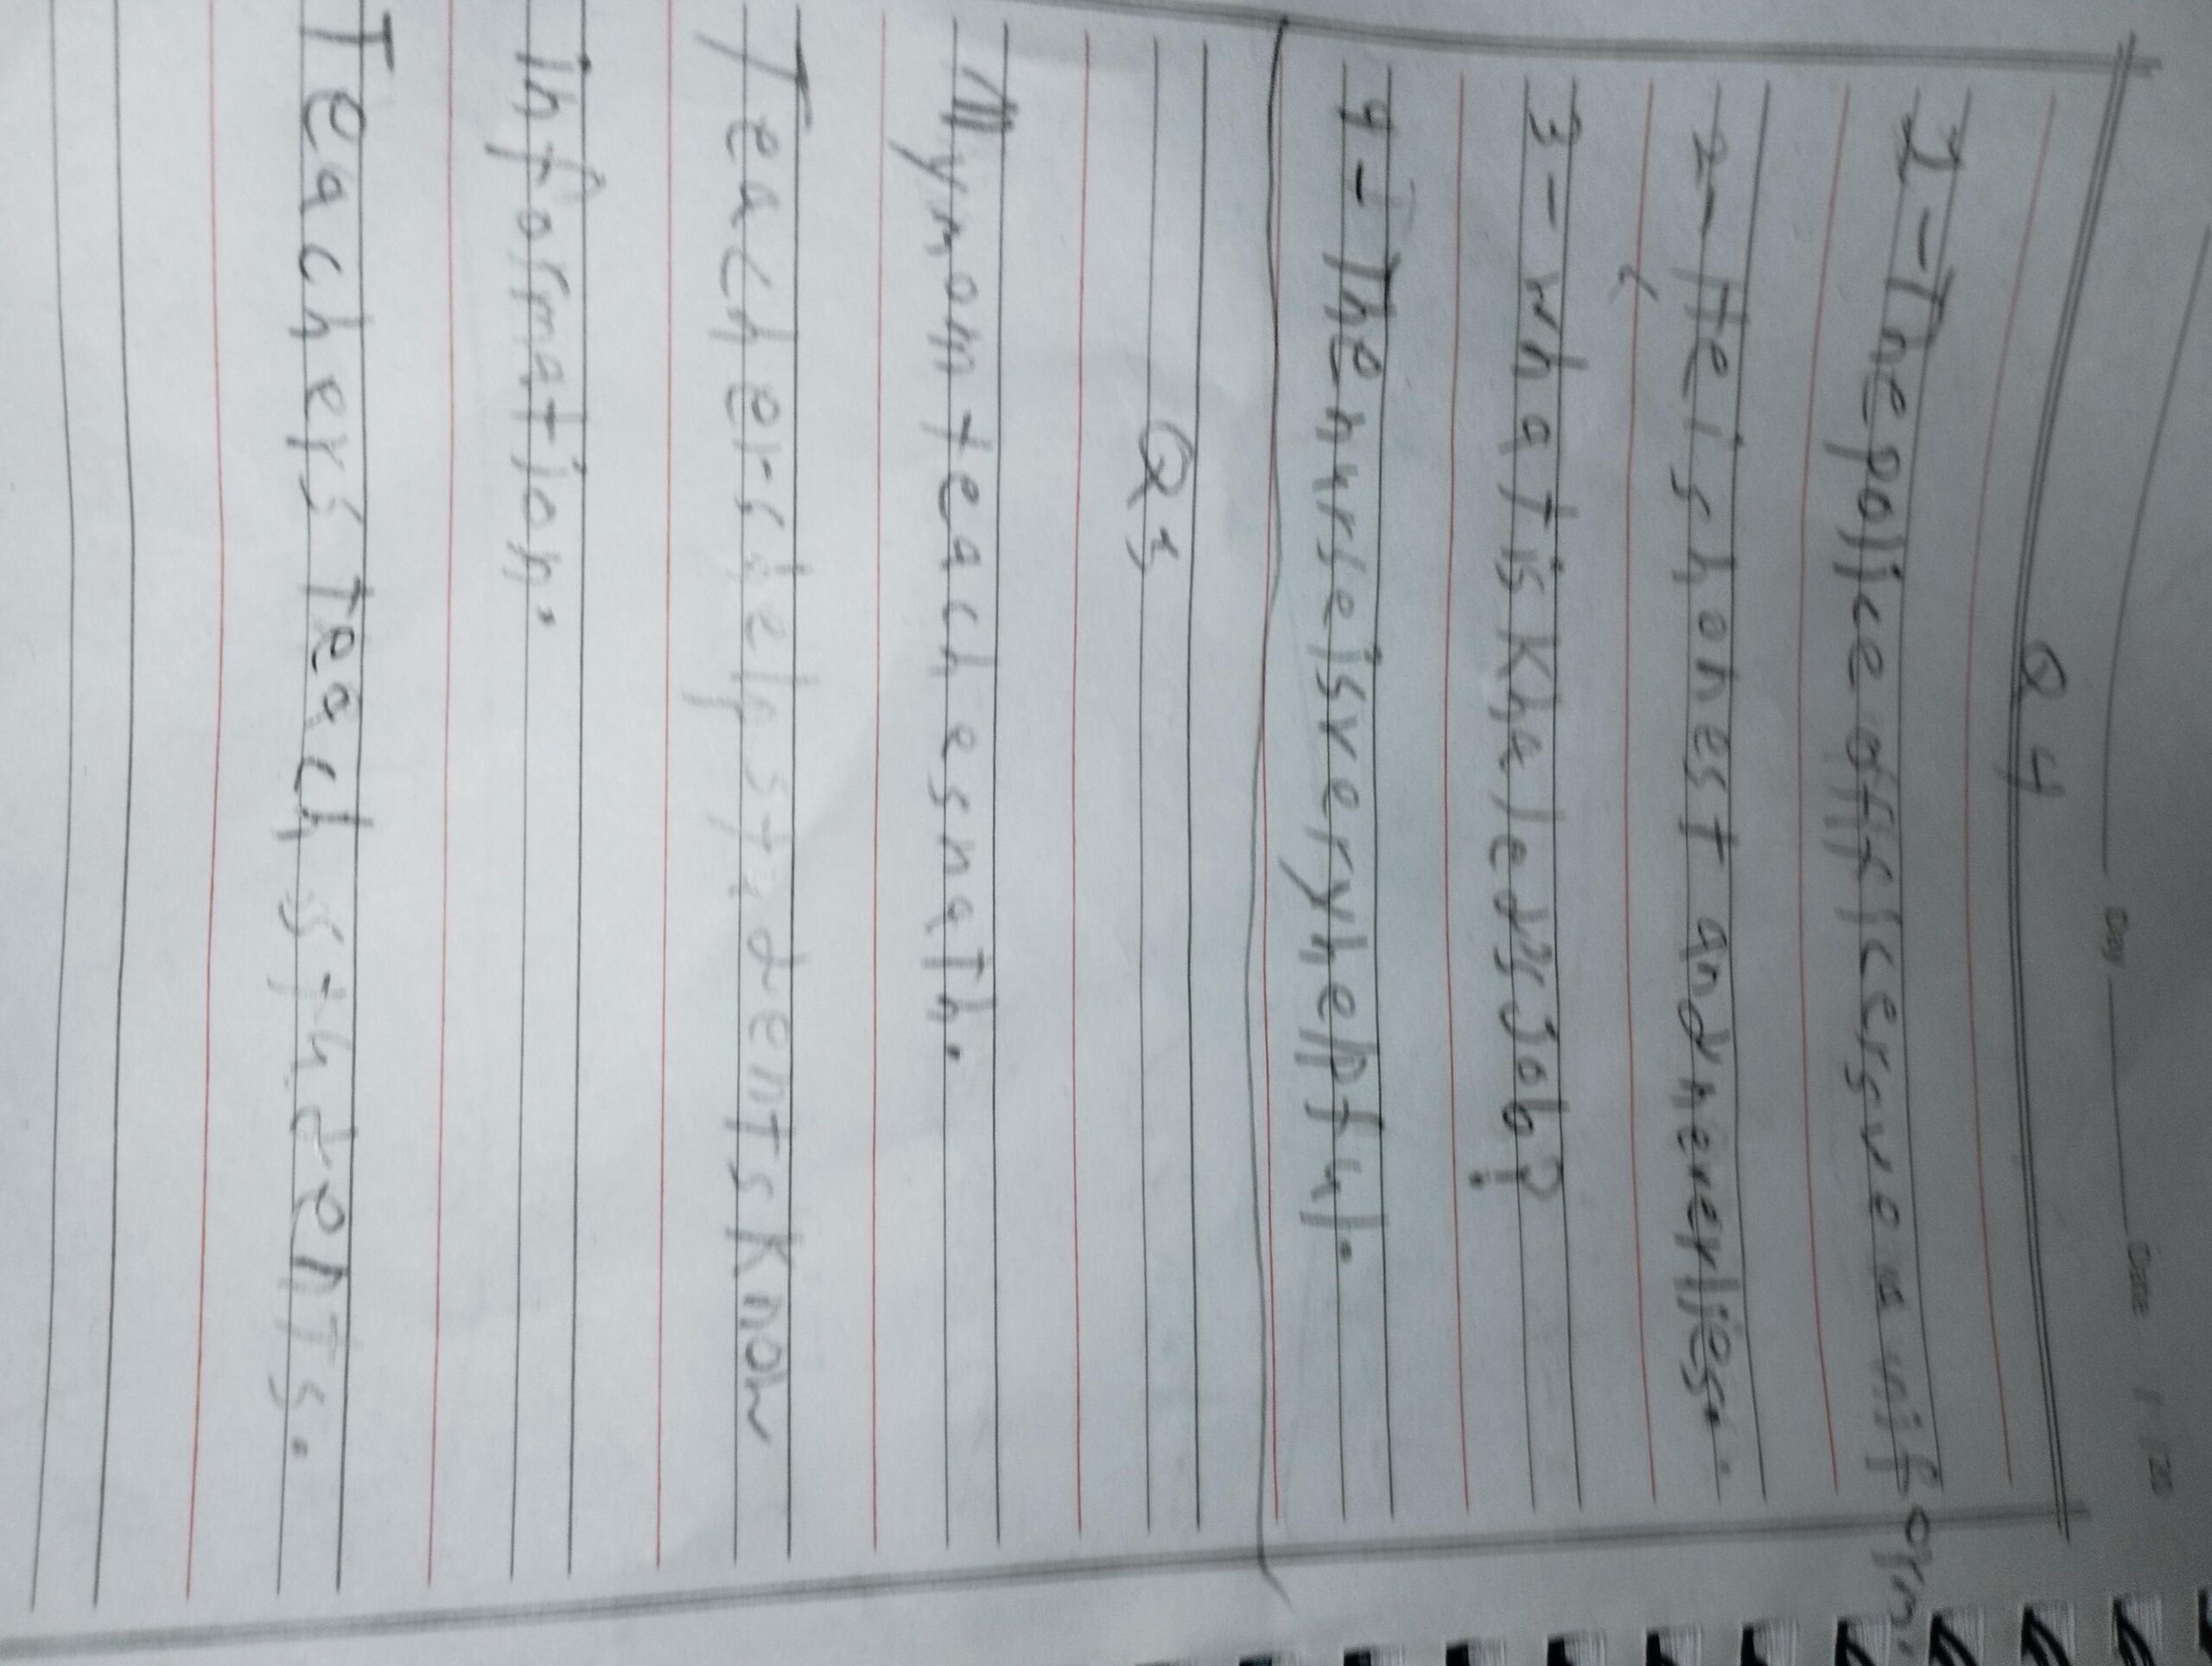 Day Date / / 20
Q4
1-The police officers ve a uniform.
2-He is honest and never lies.
3-what is Khaled's Job?
4-The nurse is very helpful.
Q5
My mom teaches math.
Teachers help students know
information.
Teachers teach students.